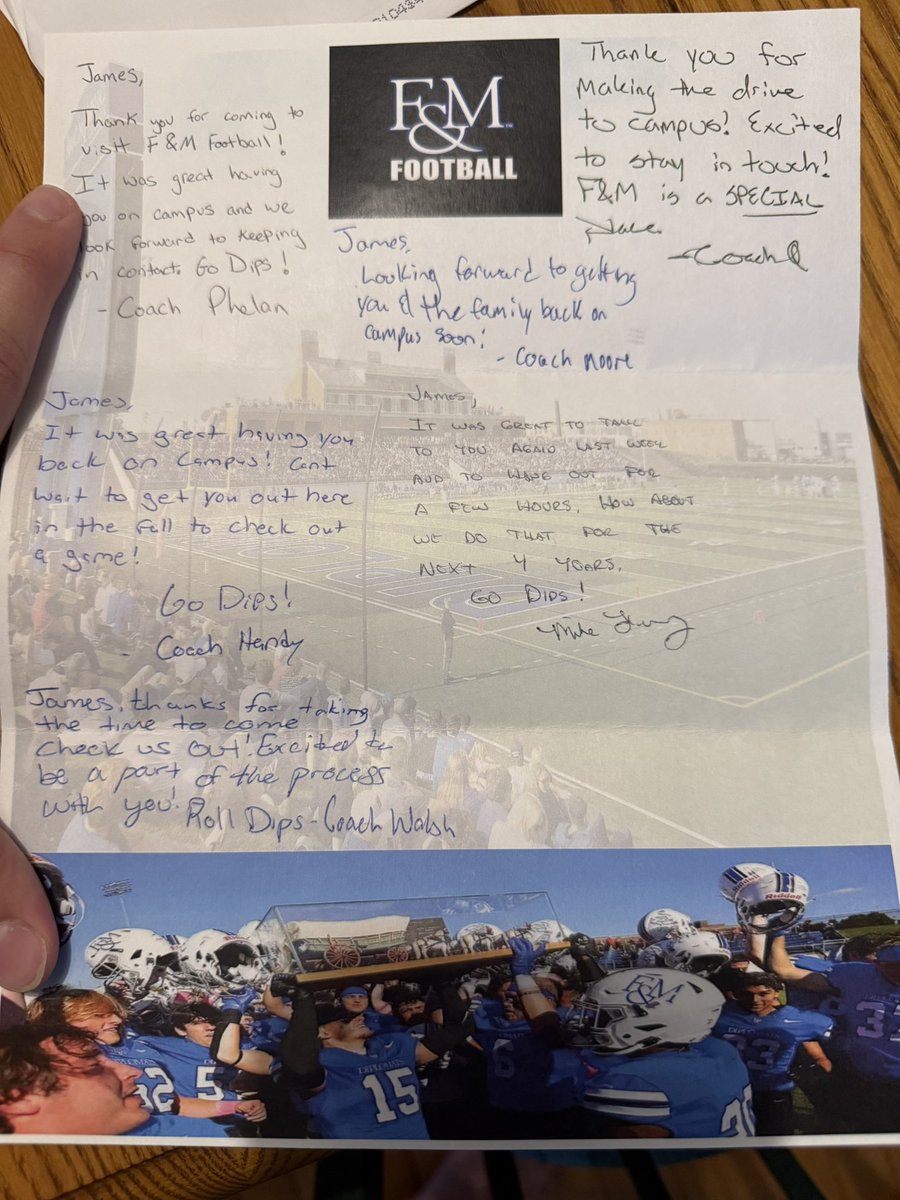 James,
Thank you for coming to
visit F&M Football!
It was great having
you on campus and we
look forward to keeping
in contact. Go Dips!
- Coach Phelan
F&M
FOOTBALL
Thank you for
Making the drive
to campus! Excited
to stay in touch!
F&M is a SPECIAL
Place.
- Coach
James,
Looking forward to getting
you & the family back on
campus soon!
- Coach Moore
James,
It was great having you
back on Campus! Cant
wait to get you out here
in the fall to check out
a game!
Go Dips!
- Coach Hendy
James,
IT WAS GREAT TO TALK
TO YOU AGAIN LAST WEEK
AND TO HANG OUT FOR
A FEW HOURS, HOW ABOUT
WE DO THAT FOR THE
NEXT 4 YEARS.
GO DIPS!
Mike
James, thanks for taking
the time to come
check us out! Excited to
be a part of the process
with you!
Roll Dips - Coach Walsh
Riddell
F&M
DIPLOMATS
32
5
15
6
33
3